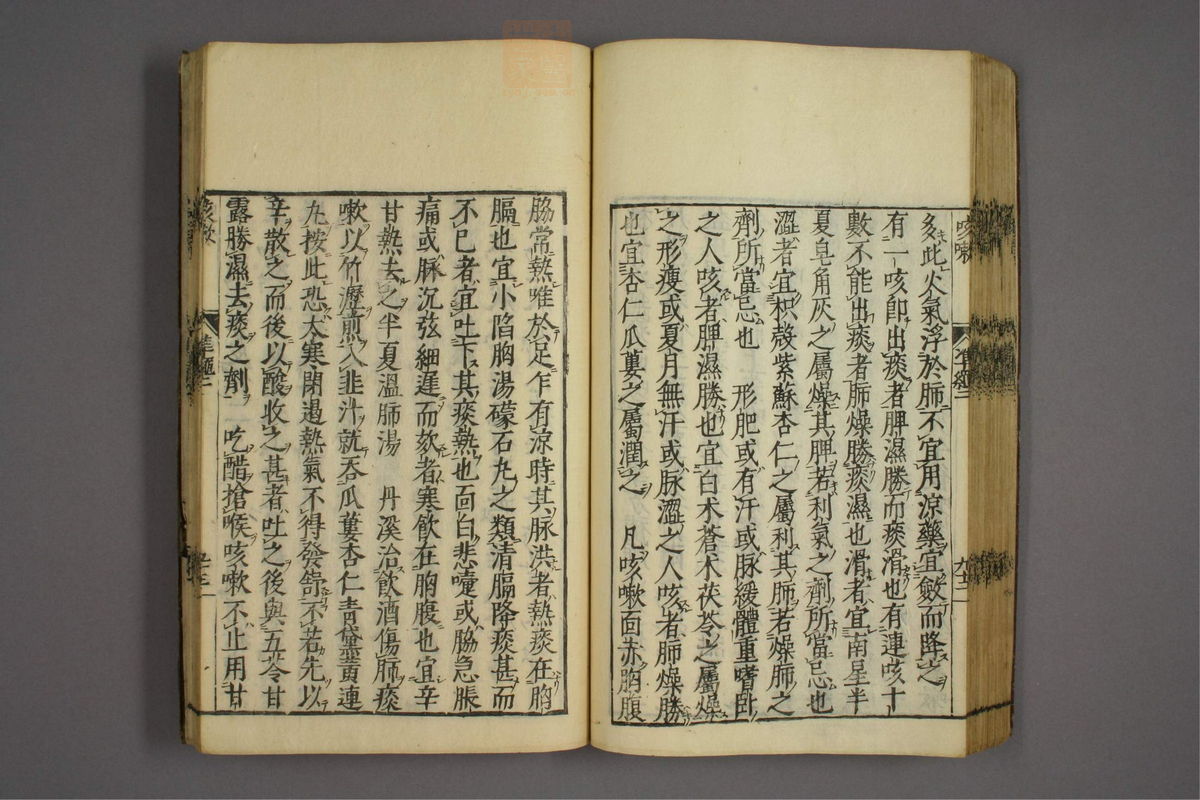 咳嗽
多此火氣浮於肺不宜用涼藥宜斂而降之
有一咳卽出痰者脾濕勝而痰滑也有連咳十
數不能出痰者肺燥勝痰濕也滑者宜南星半
夏皂角灰之屬燥其脾若利氣之劑所當忌也
澀者宜枳殼紫蘇杏仁之屬利其肺若燥肺之
劑所當忌也 形肥或有汗或脉緩體重嗜卧
之人咳者脾濕勝也宜白术蒼术茯苓之屬燥
之形瘦或夏月無汗或脉澀之人咳者肺燥勝
也宜杏仁瓜蔞之屬潤之 凡咳嗽面赤胸腹
脇常熱唯於足乍有涼時其脉洪者熱痰在胸
膈也宜小陷胸湯礞石丸之類清膈降痰甚而
不已者宜吐下其痰熱也面白悲嚏或脇急脹
痛或脉沉弦細遲而欬者寒飲在胸腹也宜辛
甘熱去之半夏溫肺湯 丹溪治飲酒傷肺痰
嗽以竹瀝煎入韭汁就吞瓜蔞杏仁青黛黃連
丸按此恐太寒閉遏熱氣不得發舒不若先以
辛散之而後以酸收之甚者吐之後與五苓甘
露勝濕去痰之劑 一吃醋搶喉咳嗽不止用甘
咳嗽